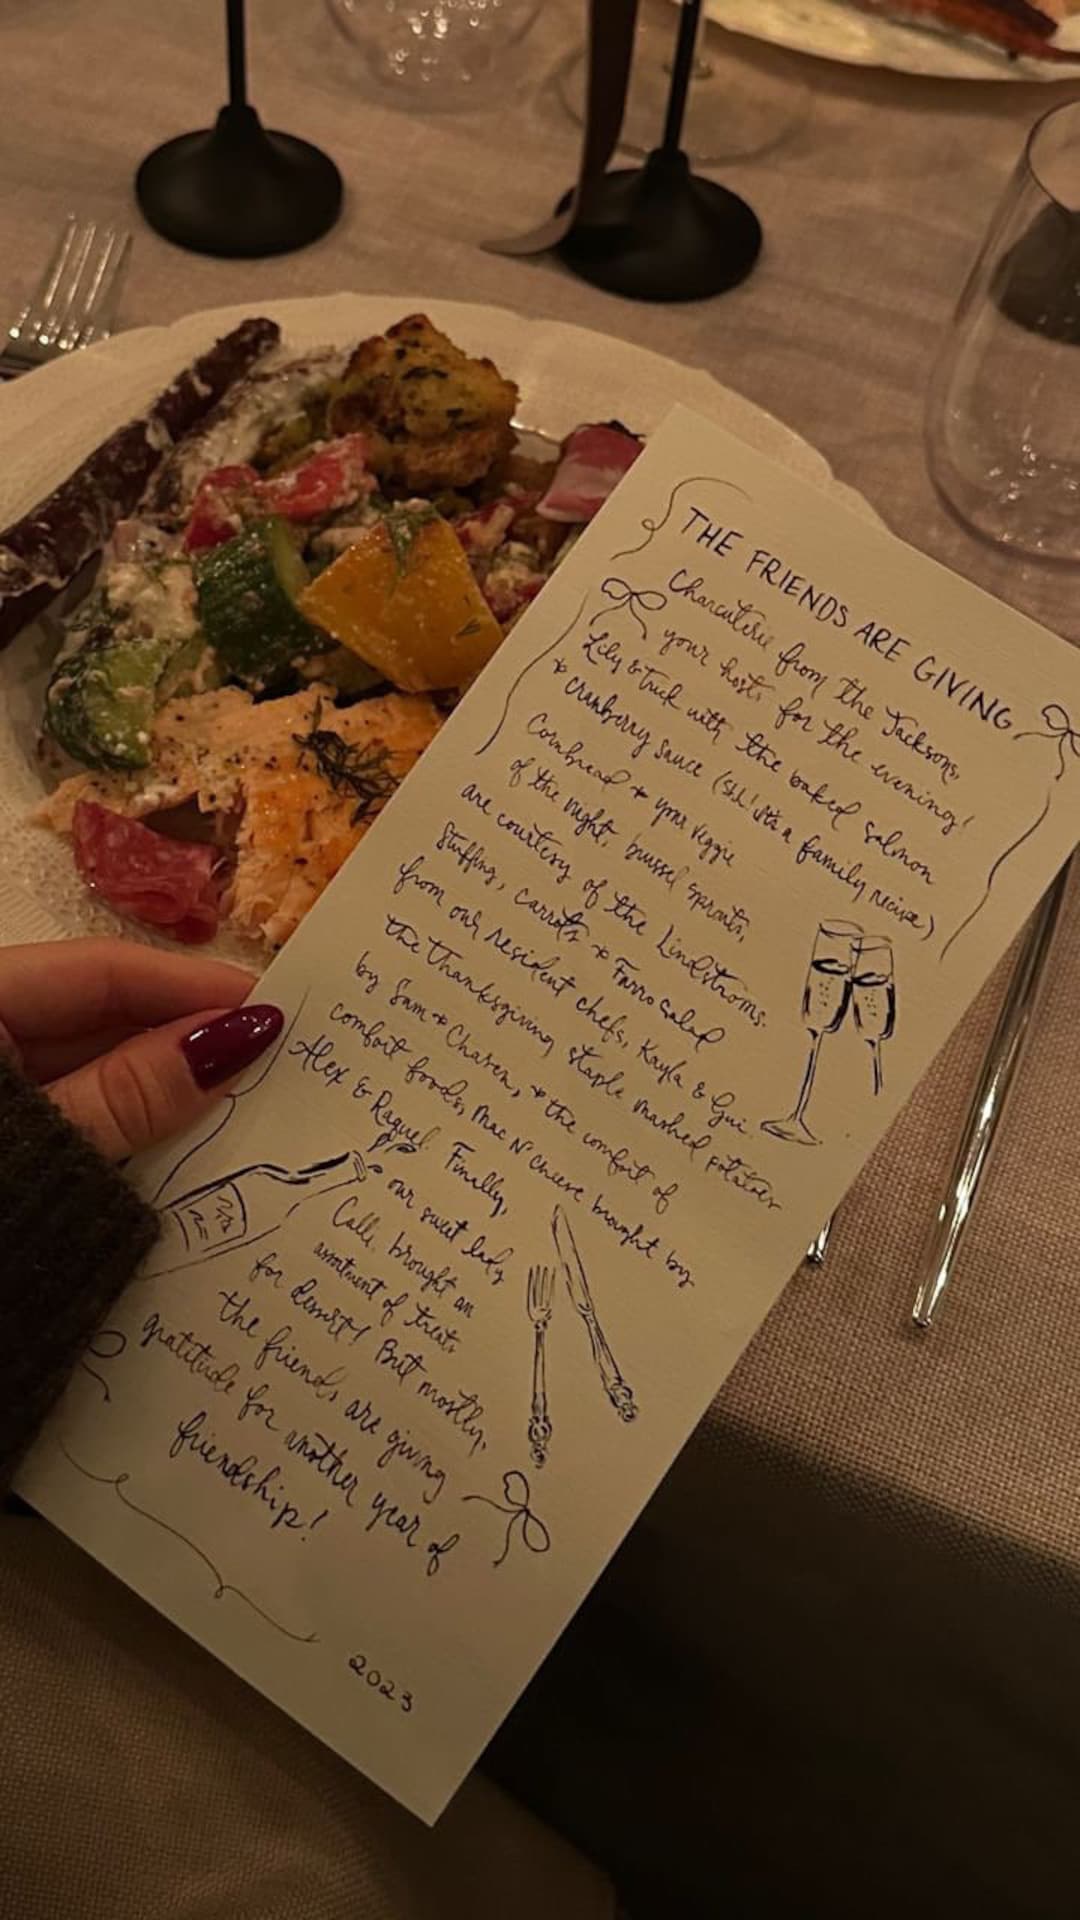 THE FRIENDS ARE GIVING
Charcuterie from the Jacksons,
your hosts for the evening!
Lily & truck with the baked salmon
& cranberry sauce (shh! it's a family recipe)
Cornbread & your veggie
of the night, brussel sprouts,
are courtesy of the Lindstroms.
Stuffing, carrots & Farro salad
from our resident chefs, Kayla & Gui.
the thanksgiving staple mashed potatoes
by Sam & Chasen, & the comfort of
comfort foods, Mac N' cheese brought by
Alex & Raquel. Finally,
our sweet lady
brought an
assortment of treats
for dessert! But mostly,
the friends are giving
gratitude for another year of
friendship!
2023